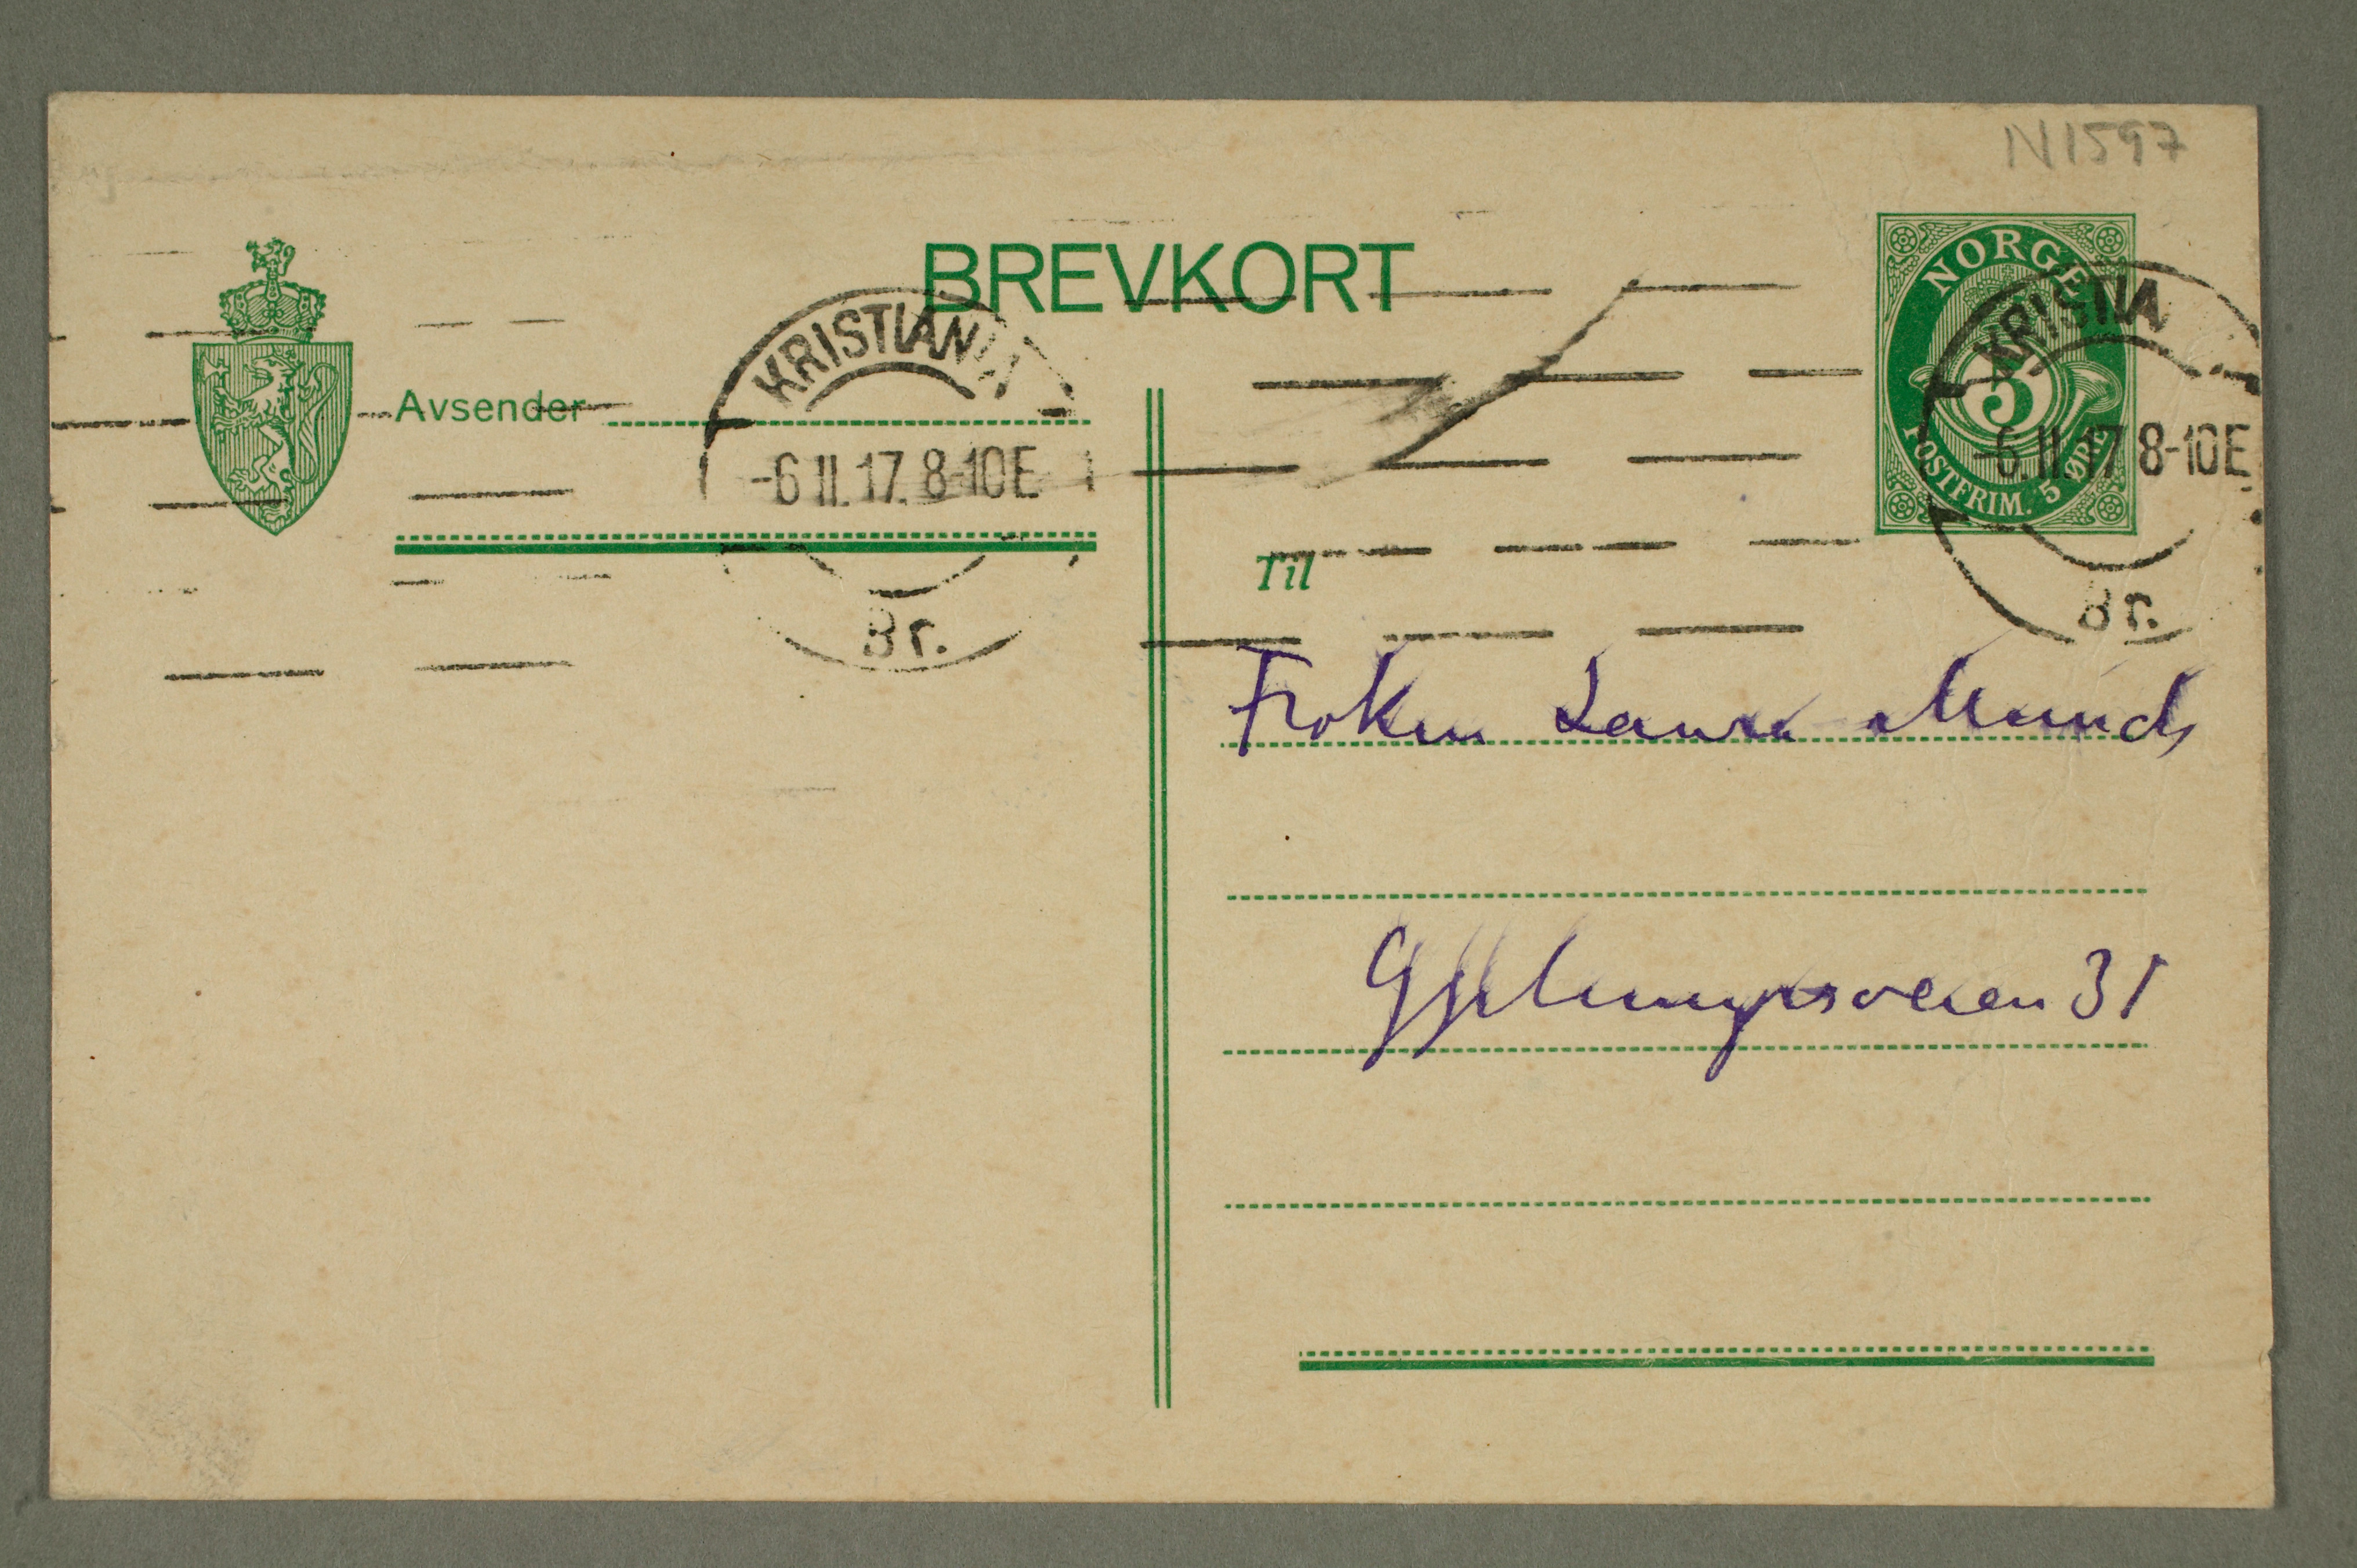 N1597
BREVKORT
NORGE
5
POSTFRIM. 5 ØRE
KRISTIANIA
-6 II. 17. 8-10E
Br.
KRISTIA
-6 II. 17 8-10E
Br.
Avsender
Til
Frøken Laura Munch
31